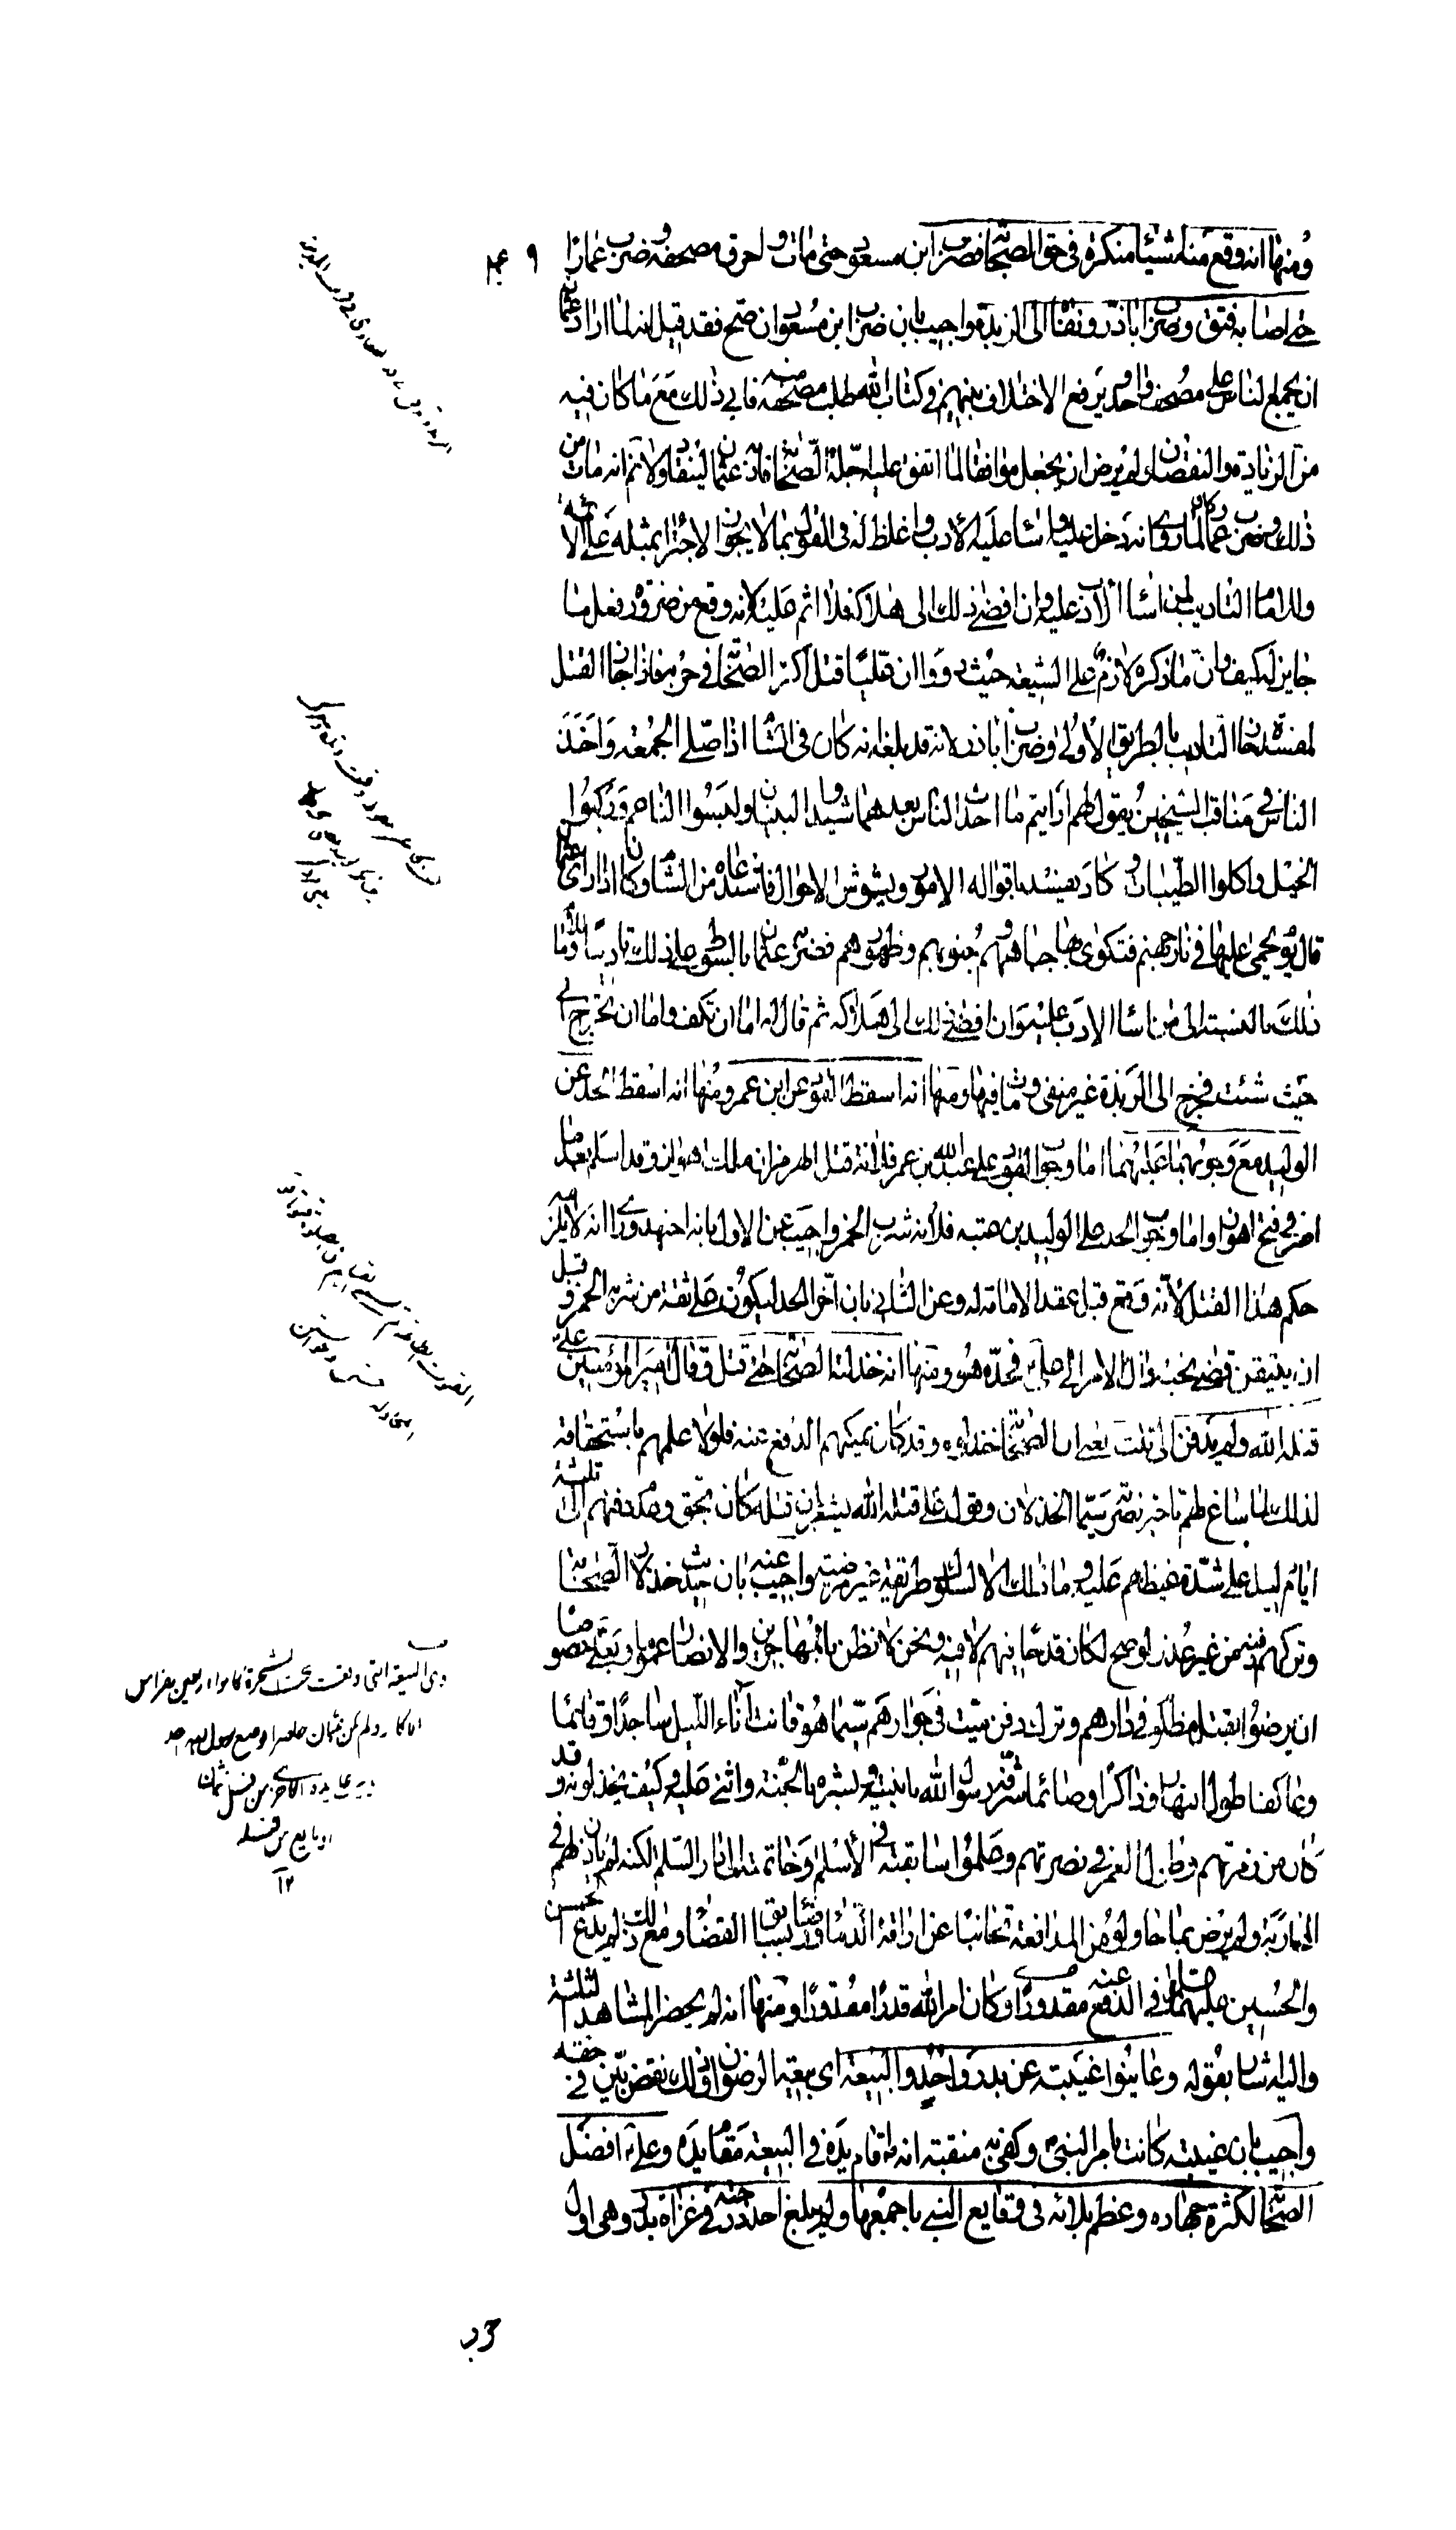 ومنها انه وقع منه اشياء منكرة في حق الصحابة فضرب ابن مسعود حتى مات واحرق مصحفه وضرب عمارا
حتى اصابه فتق وضرب اباذر ونفاه الى الربذة واجيب بان ضرب ابن مسعود ان صح فقد قيل انه لما اراد عثمان
ان يجمع الناس على مصحف واحد ويرفع الاختلاف بينهم في كتاب الله طلب مصحفه منه فابى ذلك مع ما كان فيه
من الزيادة والنقصان ولم يرض ان يجعل موافقا لما اتفق عليه اجلة الصحابة فادبه عثمان لينقاد ولا نم انه مات من
ذلك وضرب عمار كان لما روي انه دخل عليه واساء عليه الادب واغلظ له في القول بما لا يجوز الاجتراء بمثله على الائمة
وللامام التاديب لمن اساء الادب عليه وان افضى ذلك الى هلاكه فلا اثم عليه لانه وقع من ضرورة فعل ما
جايز له كيف وان ما ذكره لازم على الشيعة حيث رووا ان عليا قتل اكثر الصحابة في حربه فاذا جاز القتل
لمفسدة جاز التاديب بالطريق الاولى وضرب اباذر لانه قد بلغه انه كان في الشام اذا صلى الجمعة واخذ
الناس في مناقب الشيخين يقول لهم ارايتم ما احدث الناس بعدهما شيدوا البنيان ولبسوا الناعم وركبوا
الخيل واكلوا الطيبات وكاد يفسد باقواله الامور ويشوش الاحوال فاستدعاه من الشام وكان اذا راى عثمان
قال يوم يحمى عليها في نار جهنم فتكوى بها جباههم وجنوبهم وظهورهم فضربه عثمان بالسوط على ذلك تاديبا وللامام
ذلك بالنسبة الى من اساء الادب عليه وان افضى ذلك الى هلاكه ثم قال له اما ان تكف واما ان تخرج الى
حيث شئت فخرج الى الربذة غير منفي ومات فيها ومنها انه اسقط القود عن ابن عمر ومنها انه اسقط الحد عن
الوليد مع وجوبهما عليهما اما وجوب القود على عبد الله بن عمر فلانه قتل الهرمزان ملك اهواز وقد اسلم بعد ما
اسر في فتح اهواز واما وجوب الحد على الوليد بن عتبه فلانه شرب الخمر واجيب عن الاول بانه اجتهد وراى انه لا يلزمه
حكم هذا القتل لانه وقع قبل عقد الامامة له وعن الثاني بان اخر الحد ليكون على ثقة من شربه الخمر وقبل
ان يتيقن قضى نحبه وال الامر الى علي فحده هو ومنها انه خذلته الصحابة حتى قتل وقال امير المؤمنين علي
قتله الله ولم يدفن الى ثلث يعني ان الصحابة خذلوه وقد كان يمكنهم الدفع عنه فلولا علمهم باستحقاقه
لذلك لما ساغ لهم تاخير نصره سيما الخذلان وقول علي قتله الله يشعر بان قتله كان بحق وعدم دفنهم الى ثلثة
ايام دليل على شدة غيظهم عليه وما ذلك الا لسلوكه طريقة غير مرضية واجيب عنه بان حديث خذلان الصحابة
وتركهم دفنه من غير عذر لو صح لكان قدحا فيهم لا فيه ونحن لا نظن بالمهاجرين والانصار عموما وبعلي خصوصا
ان يرضوا بقتل مظلوم في دارهم وترك دفن ميت في جوارهم سيما هو قانت اناء الليل ساجدا وقائما
وعاكفا طول النهار ذاكرا وصائما شرفه رسول الله بابنتيه وبشره بالجنة واثنى عليه وكيف يخذلونه وقد
كان من زمرتهم وطول العمر في نصرتهم وعلموا سابقته في الاسلام وخاتمته الى دار السلام لكنه لم ياذن لهم في
المحاربة ولم يرض بما حاولوه من المدافعة تحاميا عن اراقة الدماء ورضا بسابق القضاء ومع ذلك لم يدع الحسن
والحسين عليهما السلام في الدفع عنه مقدورا وكان امر الله قدرا مقدورا ومنها انه لم يحضر المشاهد الثلثة
واليه اشار بقوله وعابوا غيبته عن بدر واحد والبيعة اي بيعة الرضوان وذلك نقص بين في حقه
واجيب بان غيبته كانت بامر النبي وكفى به منقبة انه اقام يده في البيعة مقام يده وعلي افضل
الصحابة لكثرة جهاده وعظم بلائه في وقايع النبي باجمعها ولم يبلغ احد درجته في غزاة بدر وهي اول